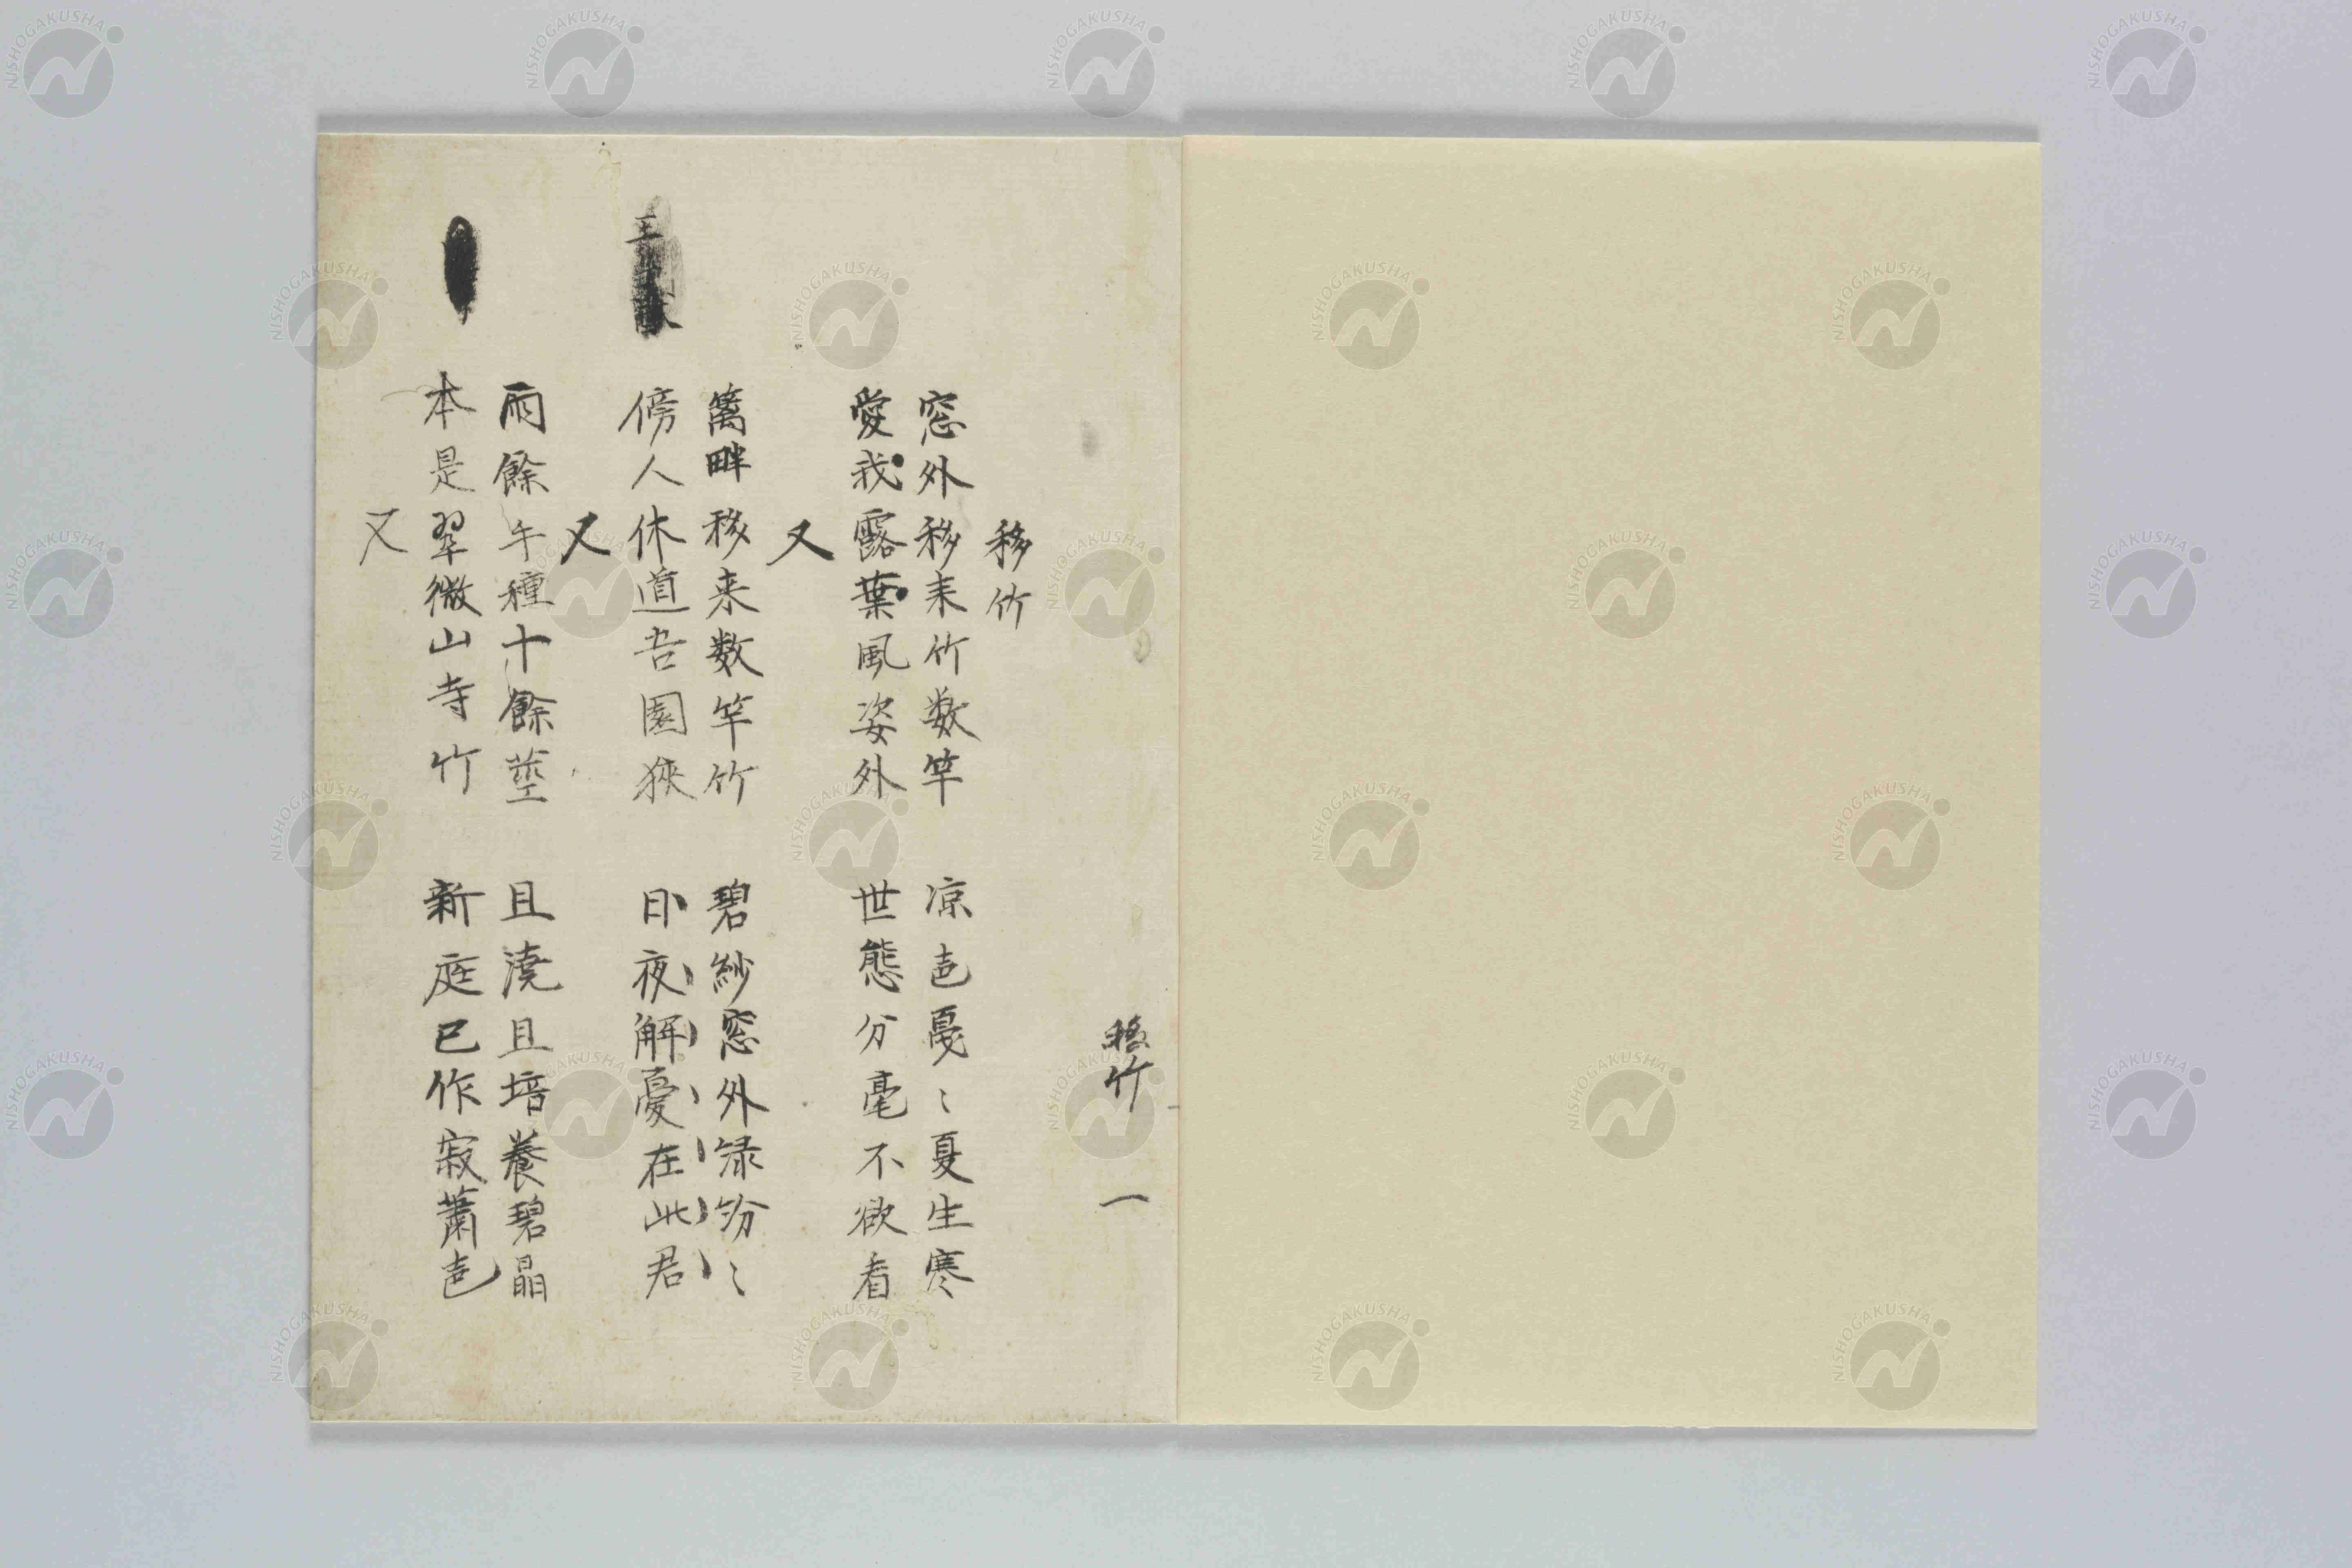 移竹 一
移竹
窓外移来竹数竿 凉色戞〻夏生寒
愛我露葉風姿外 世態分毫不欲看
又
籬畔移来数竿竹 碧紗窓外緑紛〻
傍人休道吾園狹 日夜解憂在此君
又
雨餘午種十餘莖 且澆且培養碧晶
本是翠微山寺竹 新庭已作寂蕭色
又
NISHOGAKUSHA